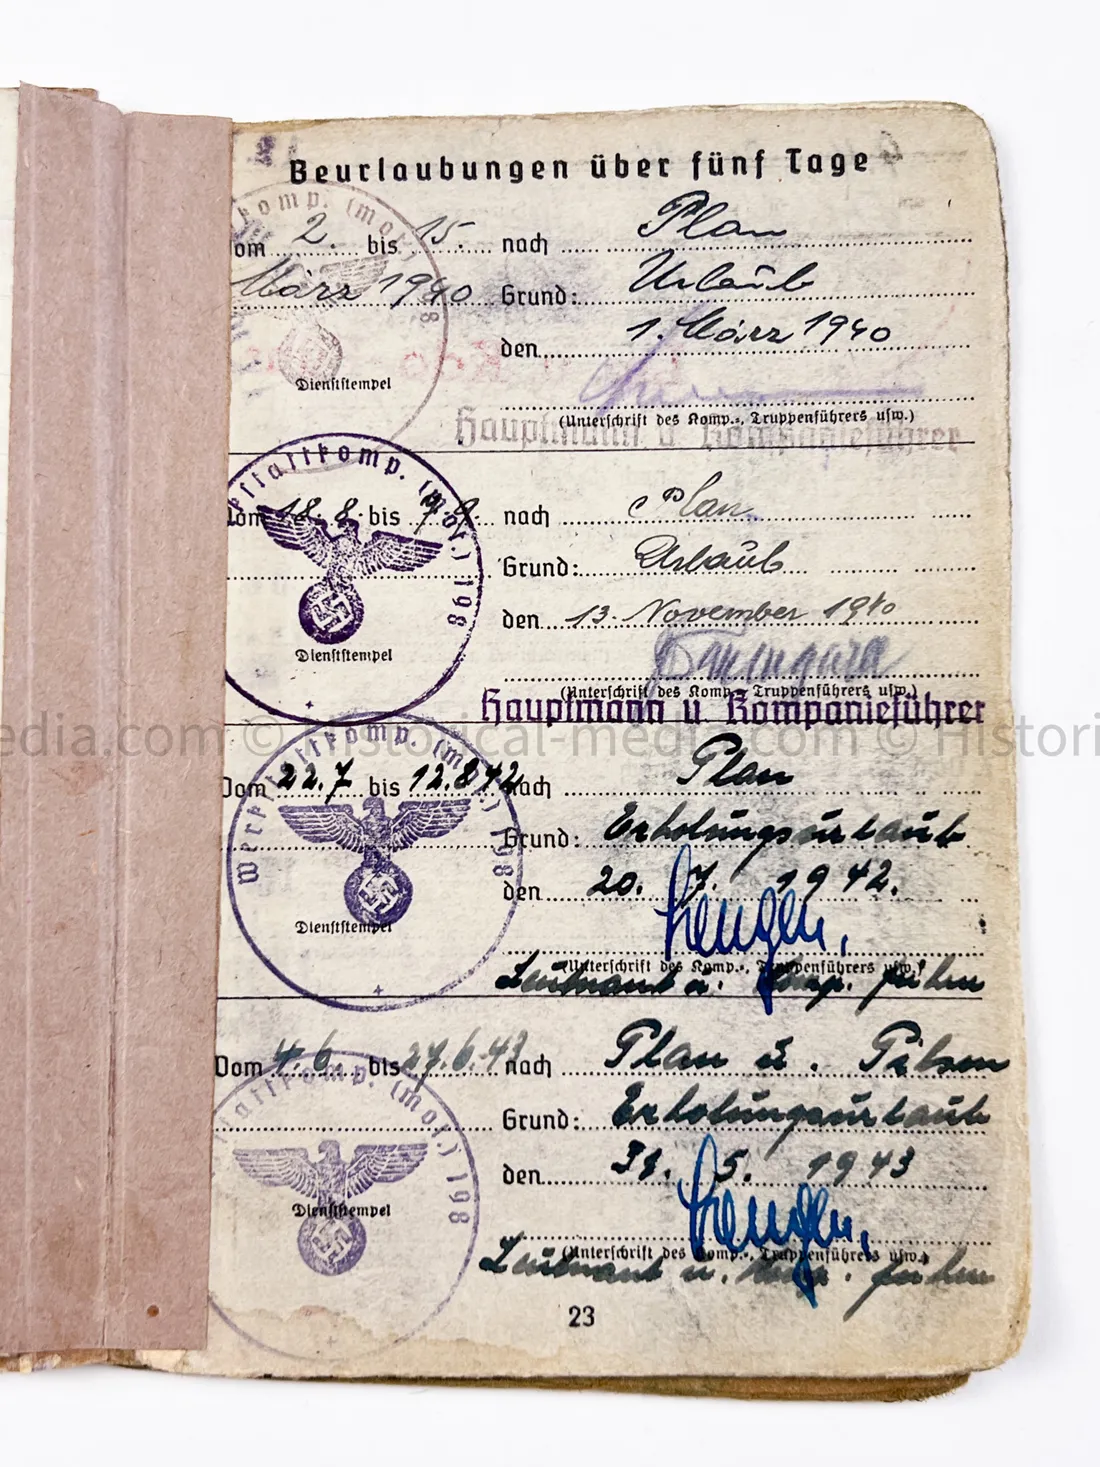 Beurlaubungen über fünf Tage
Vom 2. bis 15. nach Plan
März 1940 Grund: Urlaub
den 1. März 1940
Dienststempel
(Unterschrift des Komp.-, Truppenführers usw.)
Hauptmann u Kompanieführer
komp. (mot 198
Vom 18.8. bis 7.9. nach Plan
Grund: Urlaub
den 13. November 1940
Dienststempel
(Unterschrift des Komp.-, Truppenführers usw.)
Hauptmann u Kompanieführer
erkstattkomp. (mot.) 198
edia.com © Historical-media.com © Histori
Vom 22.7 bis 12.8 42 nach Plan
Grund: Erholungsurlaub
den 20. 7. 1942.
Dienststempel
(Unterschrift des Komp.-, Truppenführers usw.)
Leutnant u. Komp. führer
Werkstattkomp. (mot.) 198
Vom 4.6. bis 27.6.43 nach Plan u. Pilsen
Grund: Erholungsurlaub
den 31. 5. 1943
Dienststempel
(Unterschrift des Komp.-, Truppenführers usw.)
Leutnant u. Komp. führer
tattkomp. (mot.) 198
23